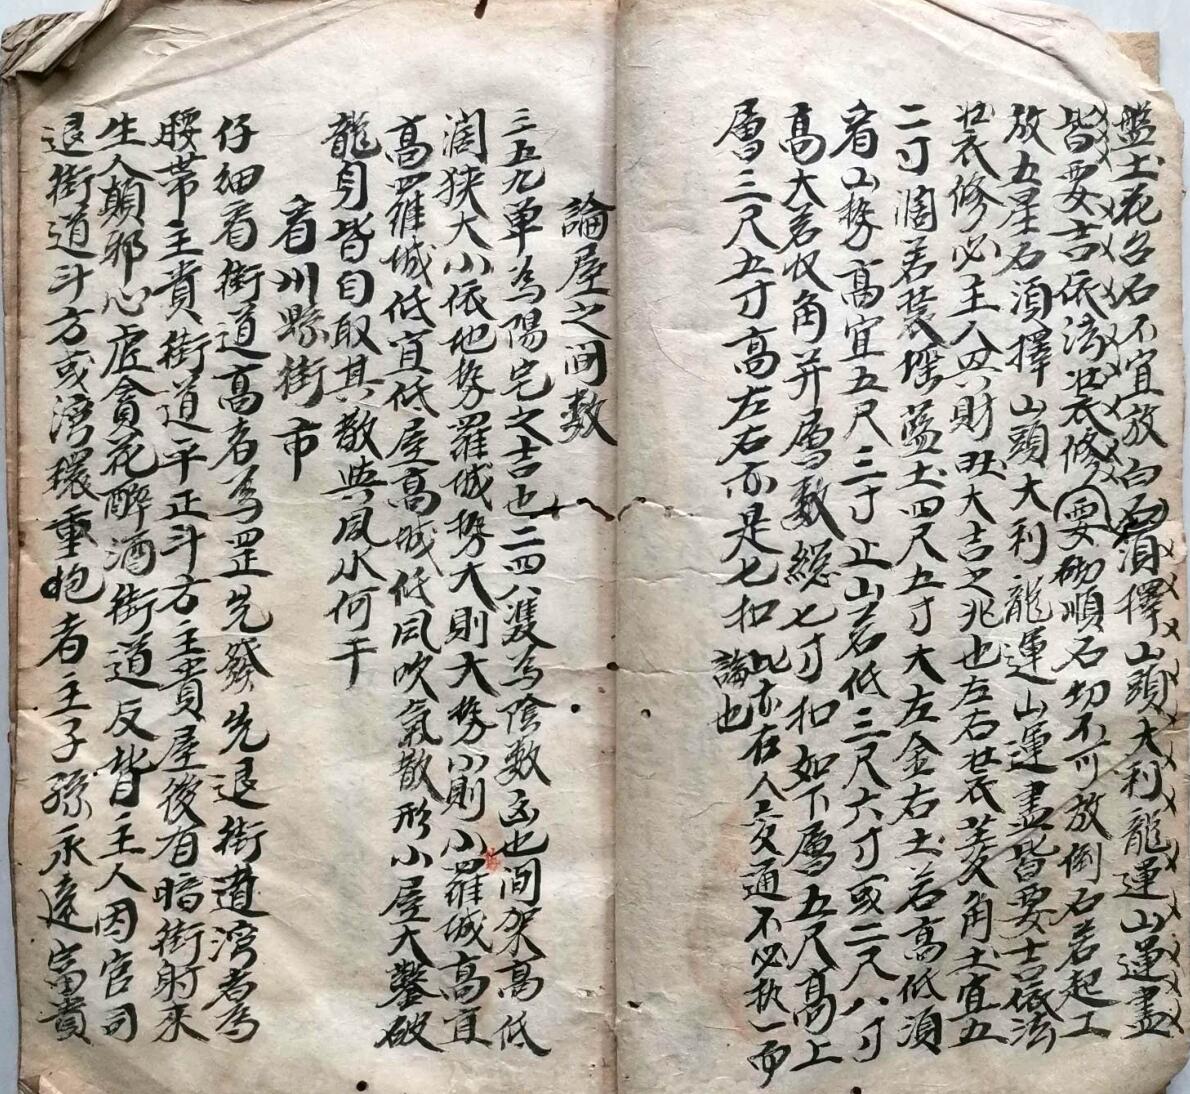 盤土花台石不宜放白石須擇山頭大利龍運山運盡
皆要吉依法裝修要砌順石切不可放倒石若起工
放五星石須擇山頭大利龍運山運盡皆要吉依法
裝修必主人興財旺大吉之兆也左右裝菱角土宜五
二寸濶若裝塋盤土四尺五寸大左金右土若高低須
看山勢高宜五尺三寸止山若低三尺六寸或二尺八寸
高大若仅角并層數總七寸扣如下層五尺高上
層三尺五寸高左右亦是七扣此亦在人变通不必执一而
論也
論屋之间數
三五九单為陽宅之吉也二四八隻為陰数凶也间架高低
濶狹大小依地势羅城势大則大势小則小羅城高宜
高羅城低宜低屋高城低风吹氣散形小屋大鑿破
龍身皆自取其散與风水何干
看州縣街市
仔细看街道高者為罡先發先退街道湾者為
腰帶主貴街道平正斗方主貴屋後有暗街射來
生人顛邪心虛貪花醉酒街道反背主人因官司
退街道斗方或湾環重抱者主子孫永遠富貴